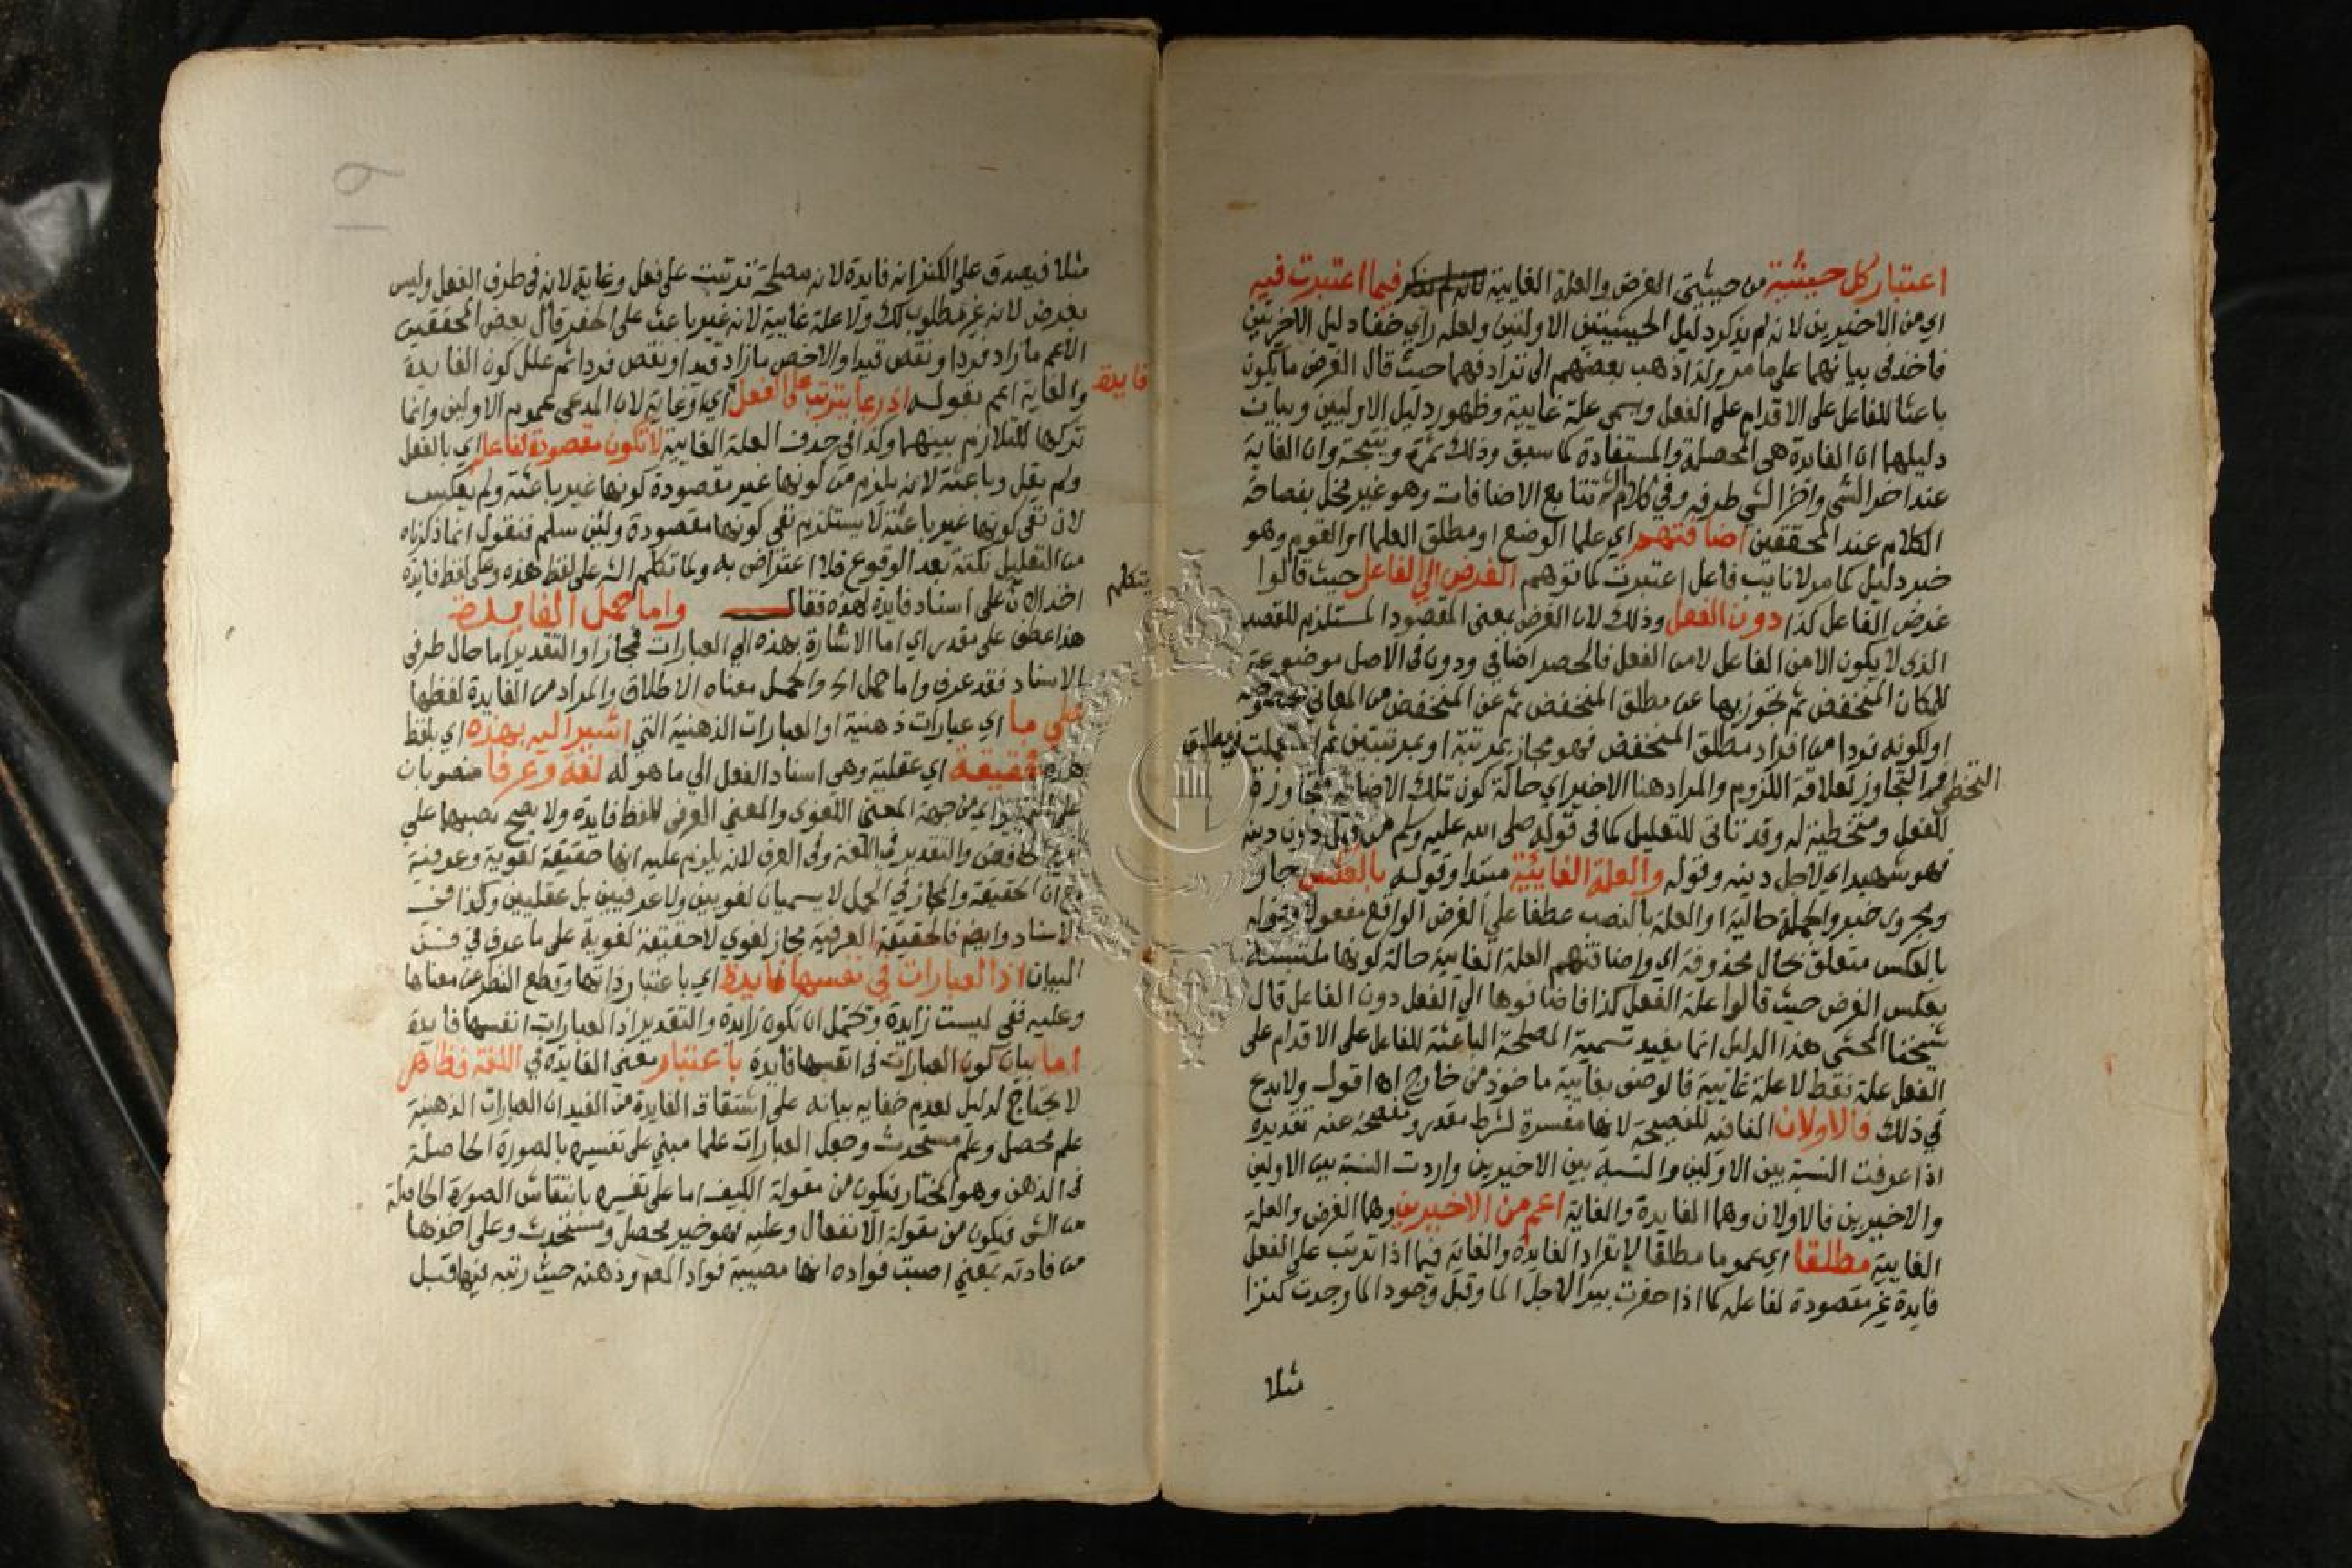 اعتبار كل حيثية من حيثيتي الغرض والعلة الغايية لانه لم يذكر فيما اعتبرت فيه
اي من الاخيرين لانه لم يذكر دليل الحيثيتين الاوليين ولعله راي خفا دليل الاخريين
فاخذ في بيانهما على ما مر ولذا ذهب بعضهم الى ترادفهما حيث قال الغرض ما يكون
باعثا للفاعل على الاقدام على الفعل ويسمى علة غايية وظهور دليل الاوليين وبيان
دليلهما ان الفايدة هي المحصلة والمستفادة كما سبق وذلك ثمرة ونتيجة وان الغاية
عند اخر الشي واخر الشي طرفه وفي كلام الش تتابع الاضافات وهو غير مخل بفصاحة
الكلام عند المحققين اضافتهم اي علما الوضع او مطلق العلما او القوم وهو
خبر دليل كما مر لا نايب فاعل اعتبرت كما توهم الغرض الي الفاعل حيث قالوا
غرض الفاعل كذا دون الفعل وذلك لان الغرض بمعنى المقصود المستلزم للقصد
الذي لا يكون الا من الفاعل لا من الفعل فالحصر اضافي ودون في الاصل موضوعة
للمكان المنخفض ثم تجوز بها عن مطلق المنخفض ثم عن المنخفض من المعاني
او لكونه فردا من افراد مطلق المنخفض فهو مجاز بمرتبة او بمرتبتين ثم استعملت في مطلق
التخطي والتجاوز لعلاقة اللزوم والمراد هنا الاخير اي حالة كون تلك الاضافة متجاوزة
للفعل ومتخطية له وقد تاتي للتعليل كما في قوله صلى الله عليه وسلم من قتل دون دينه
فهو شهيد اي لاجل دينه وقوله والعلة الغايية مبتدا وقوله بالعكس جار
ومجرور خبر والجملة حالية او العلة بالنصب عطفا على الغرض الواقع مفعولا وقوله
بالعكس متعلق بحال محذوفة اي واضافتهم العلة الغايية حالة كونها ملتبسة
بعكس الغرض حيث قالوا علة الفعل كذا فاضافوها الي الفعل دون الفاعل قال
شيخنا المحشى هذا الدليل انما يفيد تسمية المصلحة الباعثة للفاعل على الاقدام على
الفعل علة فقط لا علة غايية فالوصف بغايية ماخوذ من خارج اه اقول ولا بدع
في ذلك فالاولان الفا فيه للفصيحة لانها مفسرة لشرط مقدر ومفصحة عنه تقديره
اذا عرفت النسبة بين الاولين والنسبة بين الاخيرين واردت النسبة بين الاولين
والاخيرين فالاولان وهما الفايدة والغاية اعم من الاخيرين وهما الغرض والعلة
الغايية مطلقا اي عموما مطلقا لانفراد الفايدة والغاية فيما اذا ترتب على الفعل
فايدة غير مقصودة لفاعله كما اذا حفرت بيرا لاجل الما وقبل وجود الما وجدت كنزا
مثلا
مثلا فيصدق على الكنز انه فايدة لانه مصلحة ترتبت على فعل وغاية لانه في طرف الفعل وليس
بغرض لانه غير مطلوب لك ولا علة غايية لانه غير باعث على الحفر قال بعض المحققين
الاعم ما زاد فردا ونقص قيدا والاخص ما زاد قيدا ونقص فردا ثم علل كون الفايدة
فايدة
والغاية اعم بقوله اذ ربما يترتب على الفعل اي وغاية لان المدعى عموم الاولين وانما
تركها للتلازم بينهما وكذا في حذف العلة الغايية لا تكون مقصودة لفاعله اي بالفعل
ولم يقل وباعثة لانه يلزم من كونها غير مقصودة كونها غير باعثة ولم يعكس
لان نفي كونها غير باعثة لا يستلزم نفي كونها مقصودة ولئن سلم فنقول انما ذكرناه
من التعليل نكتة بعد الوقوع فلا اعتراض به ولما تكلم الش على لفظ هذه وعلى لفظ فايدة
يتكلم
اخذ الان على اسناد فايدة لهذه فقال واما حمل الفايدة
هذا عطف على مقدر اي اما الاشارة بهذه الي العبارات فمجاز او التقدير اما حال طرفي
الاسناد فقد عرف واما حمل الخ والحمل معناه الاطلاق والمراد من الفايدة لفظها
على ما اي عبارات ذهنية او العبارات الذهنية التي اشير اليه بهذه اي بلفظ
هذه حقيقة اي عقلية وهي اسناد الفعل الي ما هو له لغة وعرفا منصوبان
على التمييز اي من جهة المعنى اللغوي والمعني العرفي للفظ فايدة ولا يصح نصبهما على
نزع الخافض والتقدير في اللغة وفي العرف لانه يلزم عليه انها حقيقة لغوية وعرفية
مع ان الحقيقة والمجاز في الحمل لا يسميان لغويين ولا عرفيين بل عقليين وكذا في
الاسناد وايض فالحقيقة العرفية مجاز لغوي لا حقيقة لغوية على ما عرف في فن
البيان اذ العبارات في نفسها فايدة اي باعتبار ذاتها وقطع النظر عن معناها
وعليه ففي ليست زايدة وتحتمل ان تكون زايدة والتقدير اذ العبارات انفسها فايدة
اما بيان كون العبارات في انفسها فايدة باعتبار معنى الفايدة في اللغة فظاهر
لا يحتاج لدليل لعدم خفايه بيانه على اشتقاق الفايدة من الفيد ان العبارات الذهنية
علم محصل وعلم مستحدث وجعل العبارات علما مبني على تفسيره بالصورة الحاصلة
في الذهن وهو المختار فيكون من مقولة الكيف اما على تفسيره بانتقاش الصورة الحاصلة
من الشي فيكون من مقولة الانفعال وعليه فهو خير محصل ومستحدث وعلى اخذها
من فادته بمعني اصبت فواده انها مصيبة فواد المعم وذهنه حيث رتبه فيها قبل